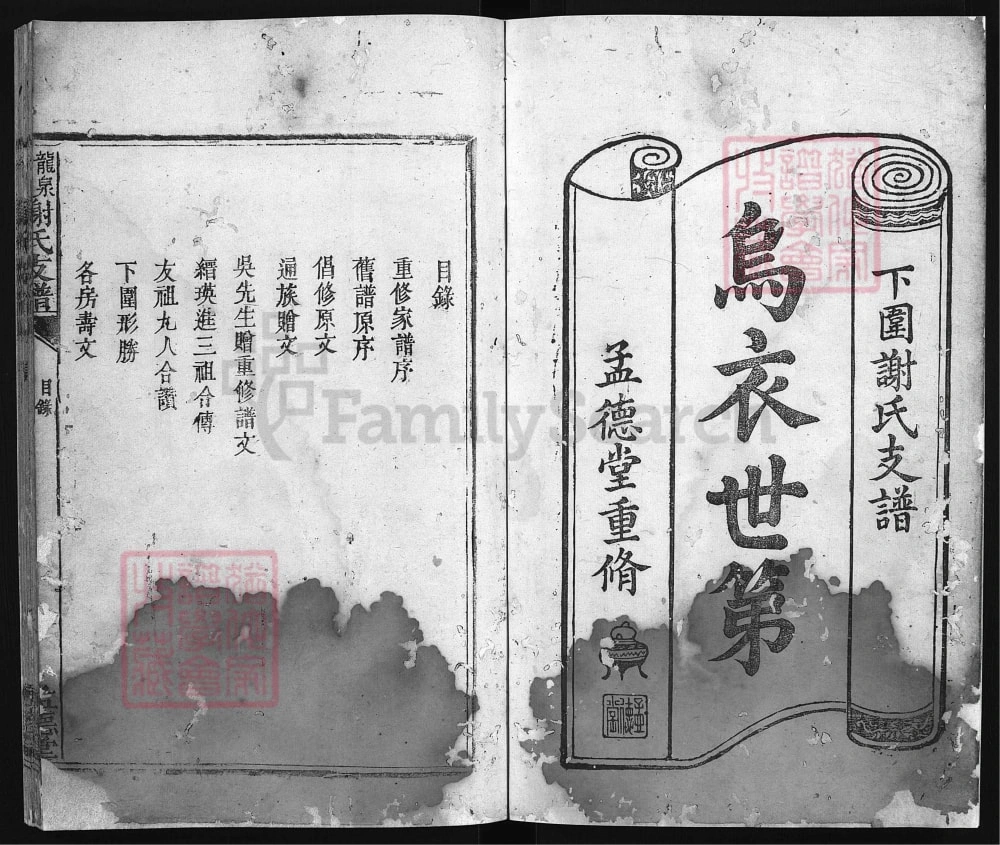 下圍謝氏支譜
烏衣世第
孟德堂重脩
孟德堂
目錄
重修家譜序
舊譜原序
倡修原文
通族贈文
吳先生贈重修譜文
縉瑛進三祖合傳
友祖九人合讚
下圍形勝
各房壽文
龍泉謝氏支譜
目錄
孟德堂
FamilySearch